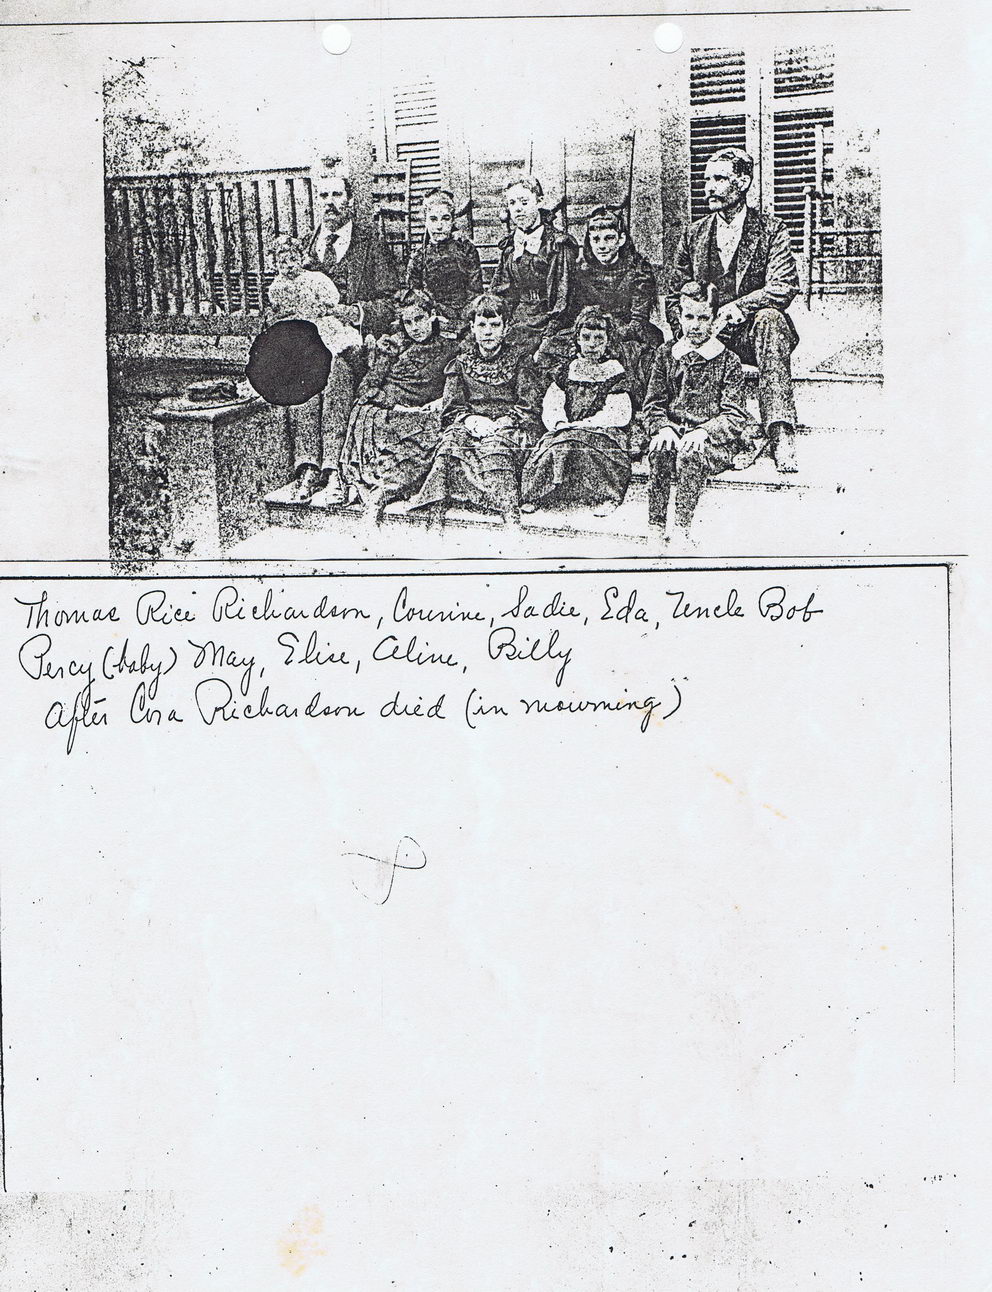 Thomas Rice Richardson, Courine, Sadie, Eda, Uncle Bob
Percy (baby) May, Elise, Aline, Billy
After Cora Richardson died (in mourning)